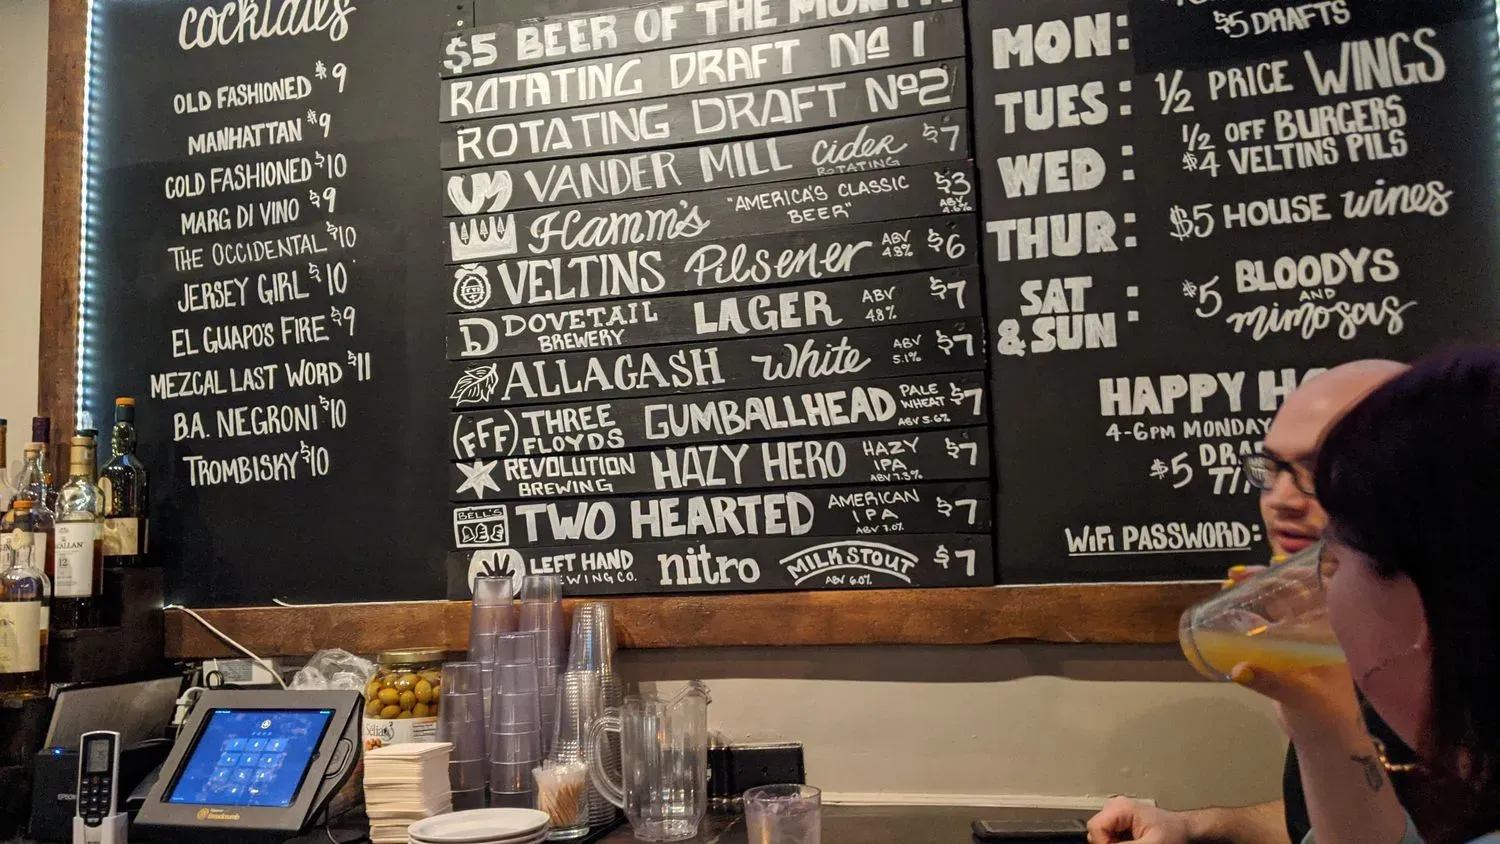 cocktails
OLD FASHIONED $9
MANHATTAN $9
COLD FASHIONED $10
MARG DI VINO $9
THE OCCIDENTAL $10
JERSEY GIRL $10
EL GUAPO'S FIRE $9
MEZCAL LAST WORD $11
B.A. NEGRONI $10
TROMBISKY $10
$5 BEER OF THE MONTH
ROTATING DRAFT No 1
ROTATING DRAFT No2
VANDER MILL Cider ROTATING $7
Hamm's "AMERICA'S CLASSIC BEER" $3 ABV 4.6%
VELTINS Pilsener ABV 4.8% $6
D DOVETAIL BREWERY LAGER ABV 4.8% $7
ALLAGASH White ABV 5.1% $7
(FFF) THREE FLOYDS GUMBALLHEAD PALE WHEAT ABV 5.6% $7
REVOLUTION BREWING HAZY HERO HAZY IPA ABV 7.3% $7
BELL'S TWO HEARTED AMERICAN IPA ABV 7.0% $7
LEFT HAND EWING CO. nitro MILK STOUT ABV 6.0% $7
MON: $5 DRAFTS
TUES: 1/2 PRICE WINGS
WED: 1/2 OFF BURGERS
$4 VELTINS PILS
THUR: $5 HOUSE wines
SAT & SUN: $5 BLOODYS AND mimosas
HAPPY H
4-6PM MONDAY
$5 DRA
WiFi PASSWORD:
12